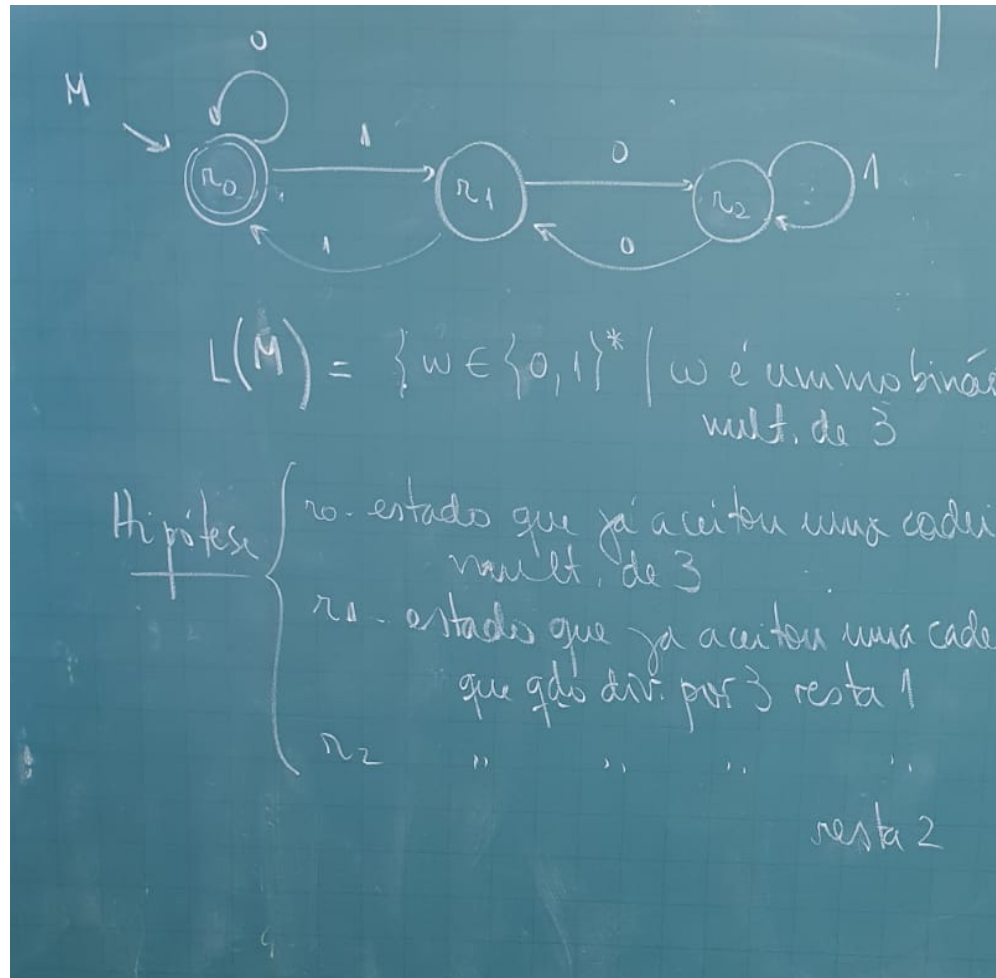 M
0
1
0
1
r0
r1
r2
1
0
L(M) = {w ∈ {0,1}* | w é um nro binár
mult. de 3
Hipótese
r0 - estado que já aceitou uma cadei
mult. de 3
r1 - estado que ja aceitou uma cade
que qdo div. por 3 resta 1
r2 " " " "
resta 2